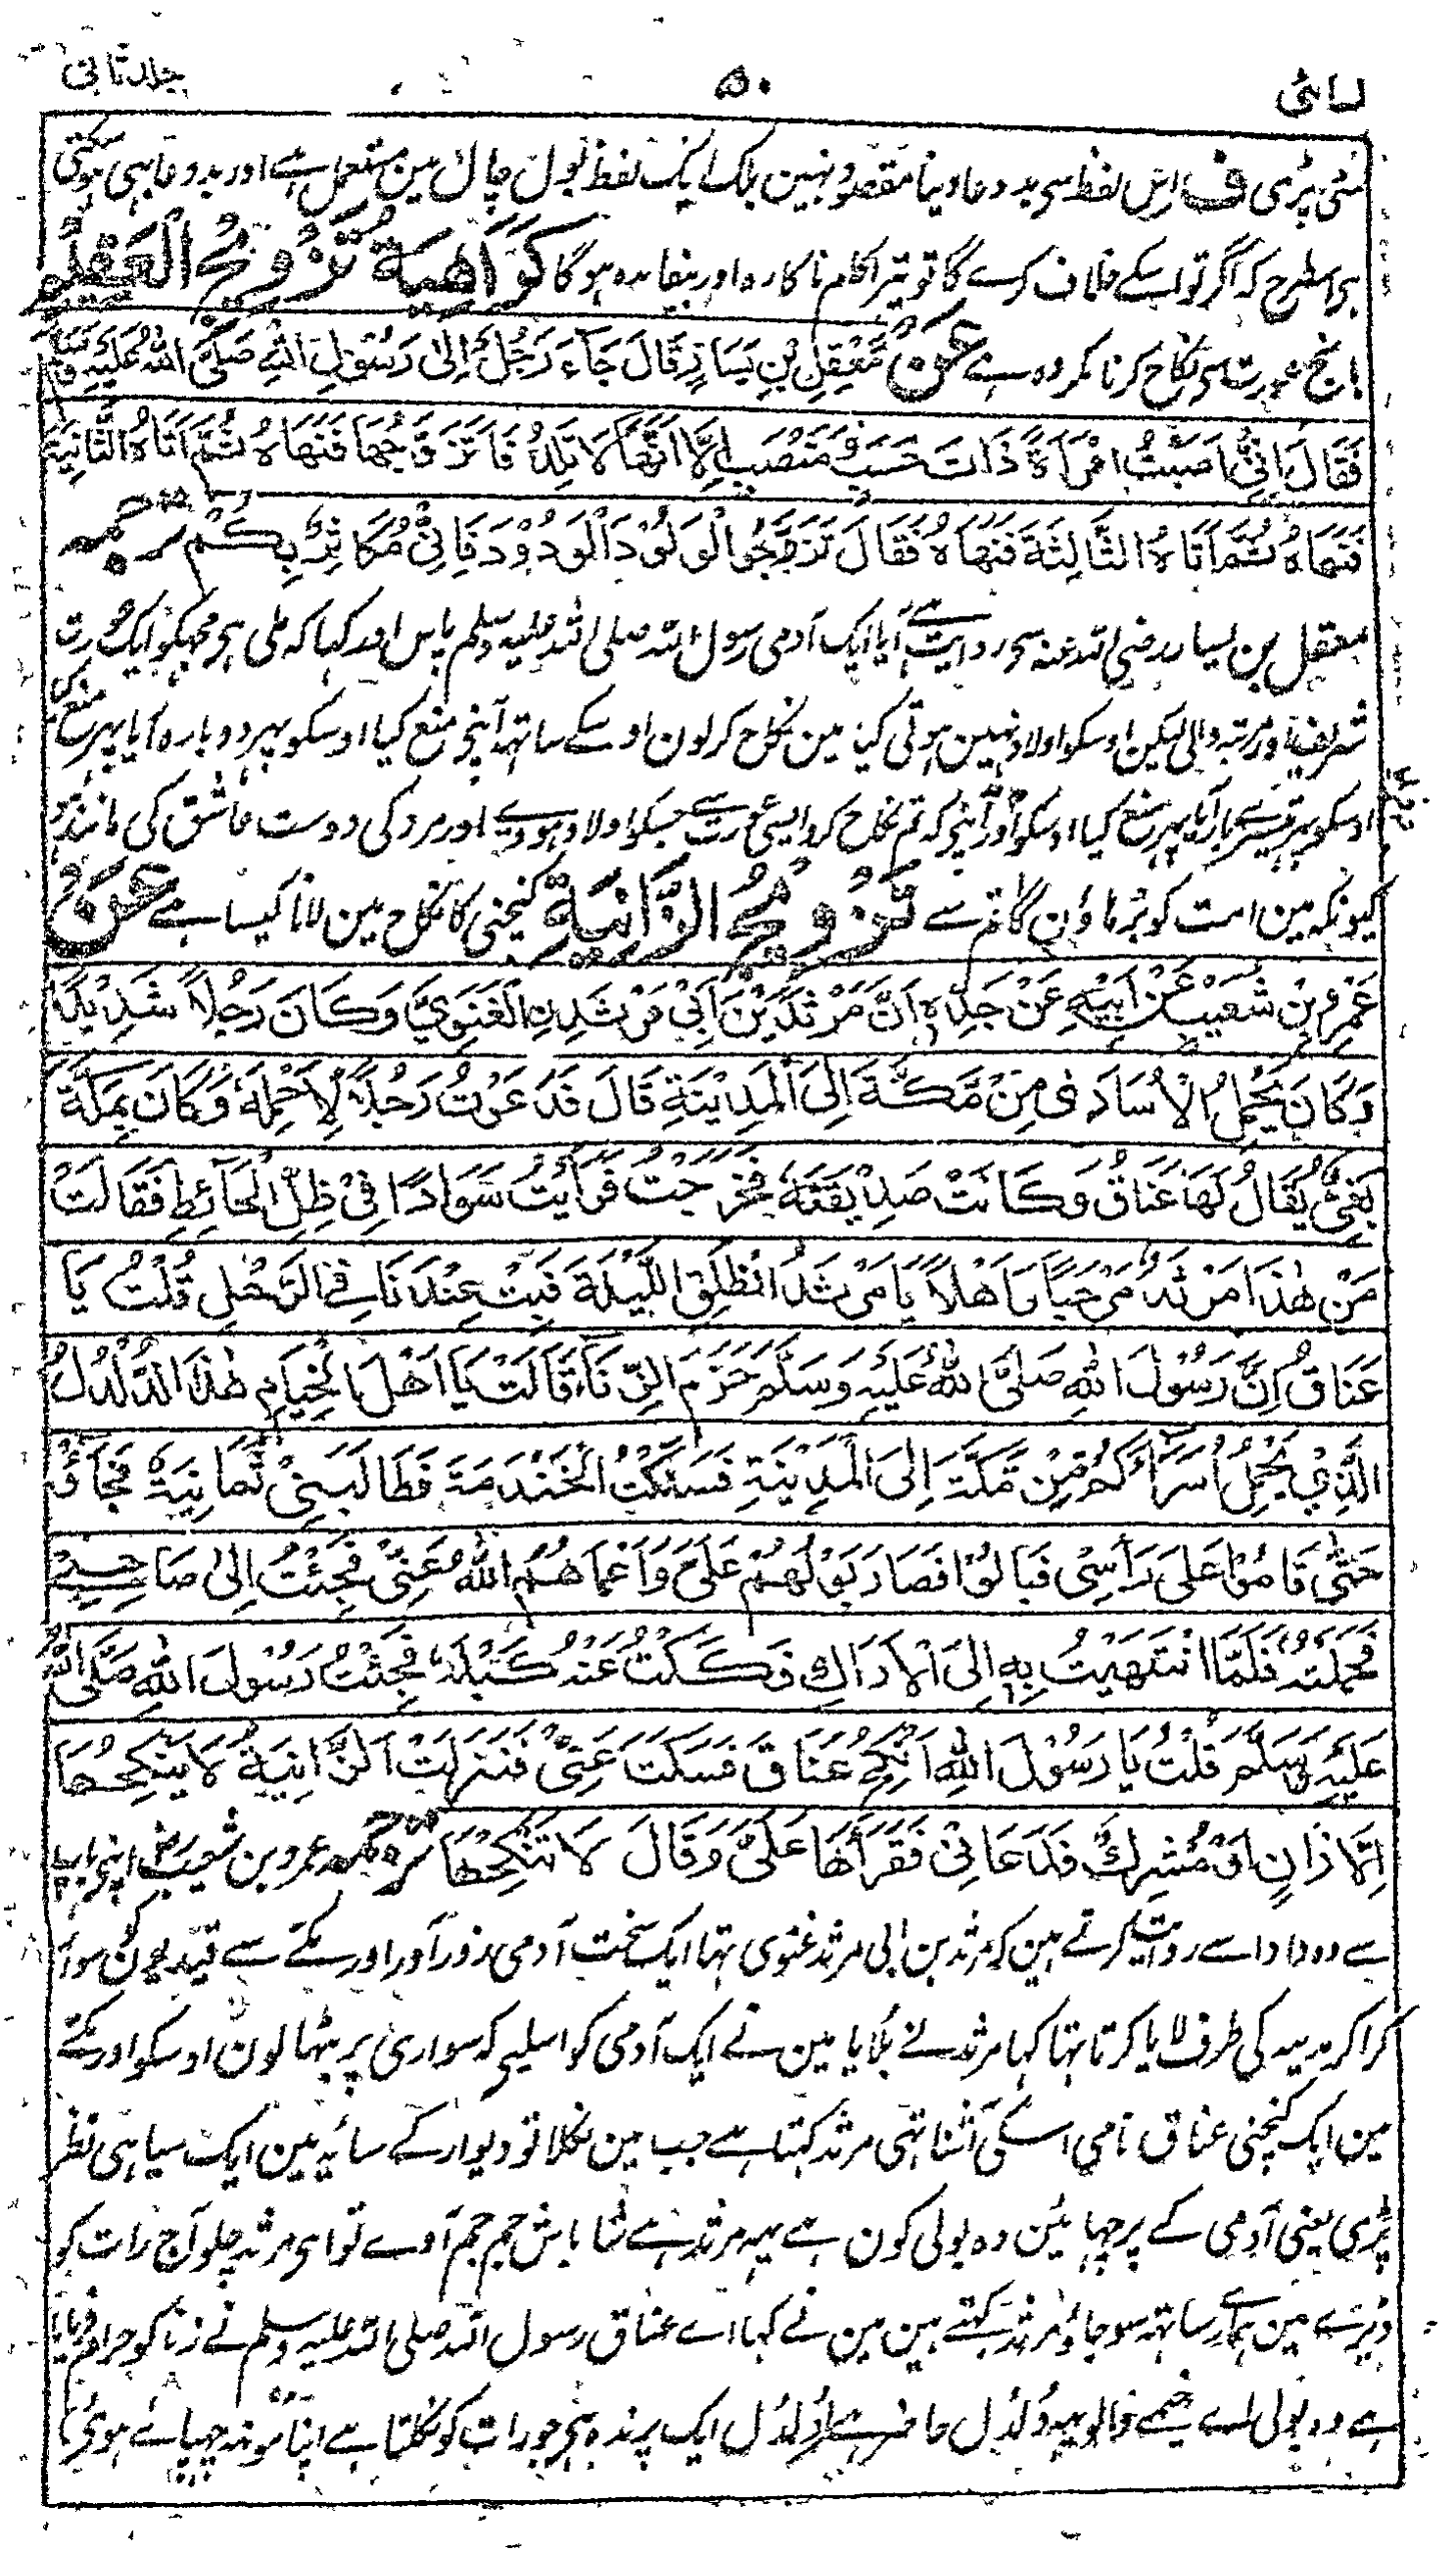 نسائی ۵۰ جلد ثانی
مٹی پڑی ف اس لفظ سی بددعا دینا مقصود نہین بلک ایک لفظ بول چال مین مستعمل ہے اور بددعا بہی ہو سکتی
ہی اسطرح کہ اگر تو اسکے خلاف کرے گا تو تیرا کام ناکارہ اور بیفایدہ ہوگا كَرَاهِيَةُ تَزْوِيْجِ الْعَقِيْمِ
بانجھ عورت سی نکاح کرنا مکروہ ہے عَنْ مَّعْقِلِ بْنِ يَسَارٍ قَالَ جَآءَ رَجُلٌ اِلٰى رَسُوْلِ اللّٰهِ صَلَّى اللّٰهُ عَلَيْهِ وَسَلَّمَ
فَقَالَ اِنِّيْ اَصَبْتُ امْرَاَةً ذَاتَ حَسَبٍ وَّمَنْصَبٍ اِلَّا اَنَّهَا لَا تَلِدُ فَاَتَزَوَّجُهَا فَنَهَاهُ ثُمَّ اَتَاهُ الثَّانِيَةَ
فَنَهَاهُ ثُمَّ اَتَاهُ الثَّالِثَةَ فَنَهَاهُ فَقَالَ تَزَوَّجُوا الْوَلُوْدَ الْوَدُوْدَ فَاِنِّيْ مُكَاثِرٌ بِكُمْ ترجمہ
معقل بن یسار رضی اللہ عنہ سی روایت ہے آیا ایک آدمی رسول اللہ صلی اللہ علیہ وسلم پاس اور کہا کہ ملی ہی مجہکو ایک عورت
شریف اور مرتبہ والی لیکن اوسکو اولاد نہین ہوتی کیا مین نکاح کرلون اوسکے ساتہہ آپنی منع کیا اوسکو پہر دوبارہ آیا پہر منع کیا
اوسکو پہر تیسرے بار آیا پہر منع کیا اوسکو اور آپنی کہ تم نکاح کرو ایسی عورت سے جسکو اولاد ہووے اور مرد کی دوست عاشق کی مانند ہو
کیونکہ مین امت کو بڑہاؤن گا تم سے تَزْوِيْجُ الزَّانِيَةِ کنچنی کا نکاح مین لانا کیسا ہے عَنْ
عَمْرِو بْنِ شُعَيْبٍ عَنْ اَبِيْهِ عَنْ جَدِّهِ اَنَّ مَرْثَدَ بْنَ اَبِيْ مَرْثَدِنِ الْغَنَوِيَّ وَكَانَ رَجُلًا شَدِيْدًا
وَكَانَ يَحْمِلُ الْاُسَارٰى مِنْ مَّكَّةَ اِلَى الْمَدِيْنَةِ قَالَ فَدَعَوْتُ رَجُلًا لِاَحْمِلَهٗ وَكَانَ بِمَكَّةَ
بَغِيٌّ يُّقَالُ لَهَا عَنَاقُ وَكَانَتْ صَدِيْقَتَهٗ فَخَرَجْتُ فَرَاَيْتُ سَوَادًا فِيْ ظِلِّ الْحَآئِطِ فَقَالَتْ
مَنْ هٰذَا مَرْثَدٌ مَرْحَبًا وَاَهْلًا يَا مَرْثَدُ انْطَلِقِ اللَّيْلَةَ فَبِتْ عِنْدَنَا فِي الرَّحْلِ قُلْتُ يَا
عَنَاقُ اِنَّ رَسُوْلَ اللّٰهِ صَلَّى اللّٰهُ عَلَيْهِ وَسَلَّمَ حَرَّمَ الزِّنَاءَ قَالَتْ يَا اَهْلَ الْخِيَامِ هٰذَا الدُّلْدُلُ
الَّذِيْ يَحْمِلُ اُسَرَاءَكُمْ مِّنْ مَّكَّةَ اِلَى الْمَدِيْنَةِ فَسَلَكْتُ الْخَنْدَمَةَ فَطَالَبَنِيْ ثَمَانِيَةٌ فَجَآؤُا
حَتّٰى قَامُوْا عَلٰى رَاْسِيْ فَبَالُوْا فَصَارَ بَوْلُهُمْ عَلَيَّ وَاَعْمَاهُمُ اللّٰهُ عَنِّيْ فَجِئْتُ اِلٰى صَاحِبِيْ
فَحَمَلْتُهٗ فَلَمَّا انْتَهَيْتُ بِهٖ اِلَى الْاَرَاكِ فَكَكْتُ عَنْهُ كَبْلَهٗ فَجِئْتُ رَسُوْلَ اللّٰهِ صَلَّى اللّٰهُ
عَلَيْهِ وَسَلَّمَ قُلْتُ يَا رَسُوْلَ اللّٰهِ اَنْكِحُ عَنَاقَ فَسَكَتَ عَنِّيْ فَنَزَلَتْ اَلزَّانِيَةُ لَا يَنْكِحُهَا
اِلَّا زَانٍ اَوْ مُشْرِكٌ فَدَعَانِيْ فَقَرَاَهَا عَلَيَّ وَقَالَ لَا تَنْكِحْهَا ترجمہ عمرو بن شعیب اپنی باپ
سے وہ دادا سے روایت کرتے ہین کہ مرثد بن ابی مرثد غنوی تہا ایک سخت آدمی زورآور اور مکے سے قیدیون کو سوار
کرا کر مدینہ کی طرف لایا کرتا تہا کہا مرثد نے بلایا مین نے ایک آدمی کو اسلیی کہ سواری پر بٹہا لون اوسکو اور مکے
مین ایک کنچنی عناق نامی اسکی آشنا تہی مرثد کہتا ہے جب مین نکلا تو دیوار کے سایہ مین ایک سیاہی نظر
پڑی یعنی آدمی کے پرچہائین وہ بولی کون ہے یہہ مرثد ہے شاباش جم جم آوے تو ای مرثد چلو آج رات کو
ڈیرے مین ہمارے ساتہہ سو جاؤ مرثد کہتے ہین مین نے کہا اے عناق رسول اللہ صلی اللہ علیہ وسلم نے زنا کو حرام فرمایا
ہے وہ بولی اے خیمے والو یہہ دُلدُل حاضر ہے دُلدُل ایک پرندہ ہی جو رات کو نکلتا ہے اپنا مونہہ چہپائے ہوئی